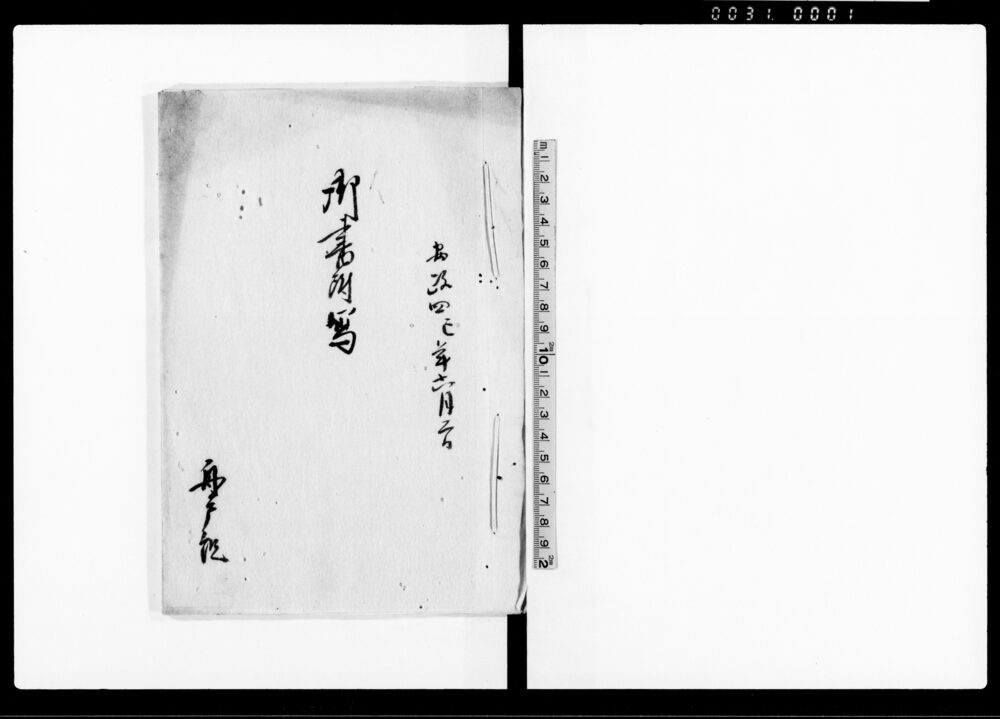 0031. 0001
安政四巳年六月二日
御書附写
m 1 2 3 4 5 6 7 8 9 10 1 2 3 4 5 6 7 8 9 2